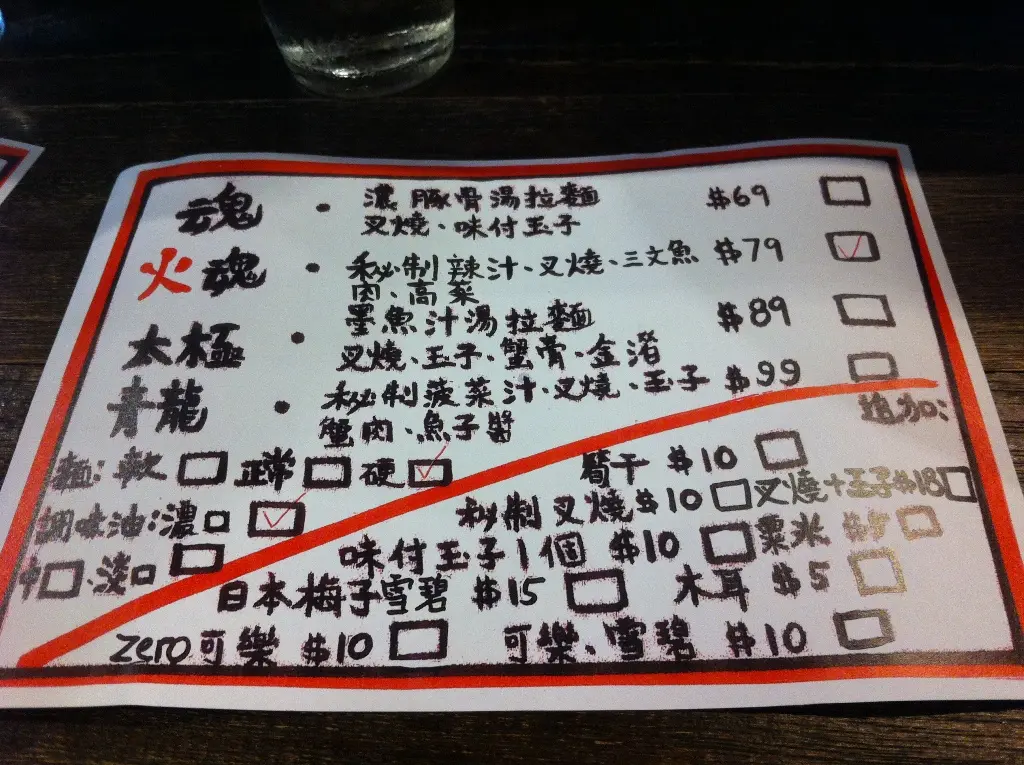 魂 • 濃豚骨湯拉麵 $69
叉燒、味付玉子
火魂 • 秘制辣汁、叉燒、三文魚 $79
肉、高菜
太極 • 墨魚汁湯拉麵 $89
叉燒、玉子、蟹膏、金渚
青龍 • 秘制菠菜汁、叉燒、玉子 $99
蟹肉、魚子醬
追加:
麵: 軟 正常 硬
筍干 $10
調味油:濃口
秘制叉燒 $10 叉燒+玉子$18
中 淡口
味付玉子1個 $10 粟米 $5
日本梅子雪碧 $15 木耳 $5
Zero可樂 $10 可樂、雪碧 $10